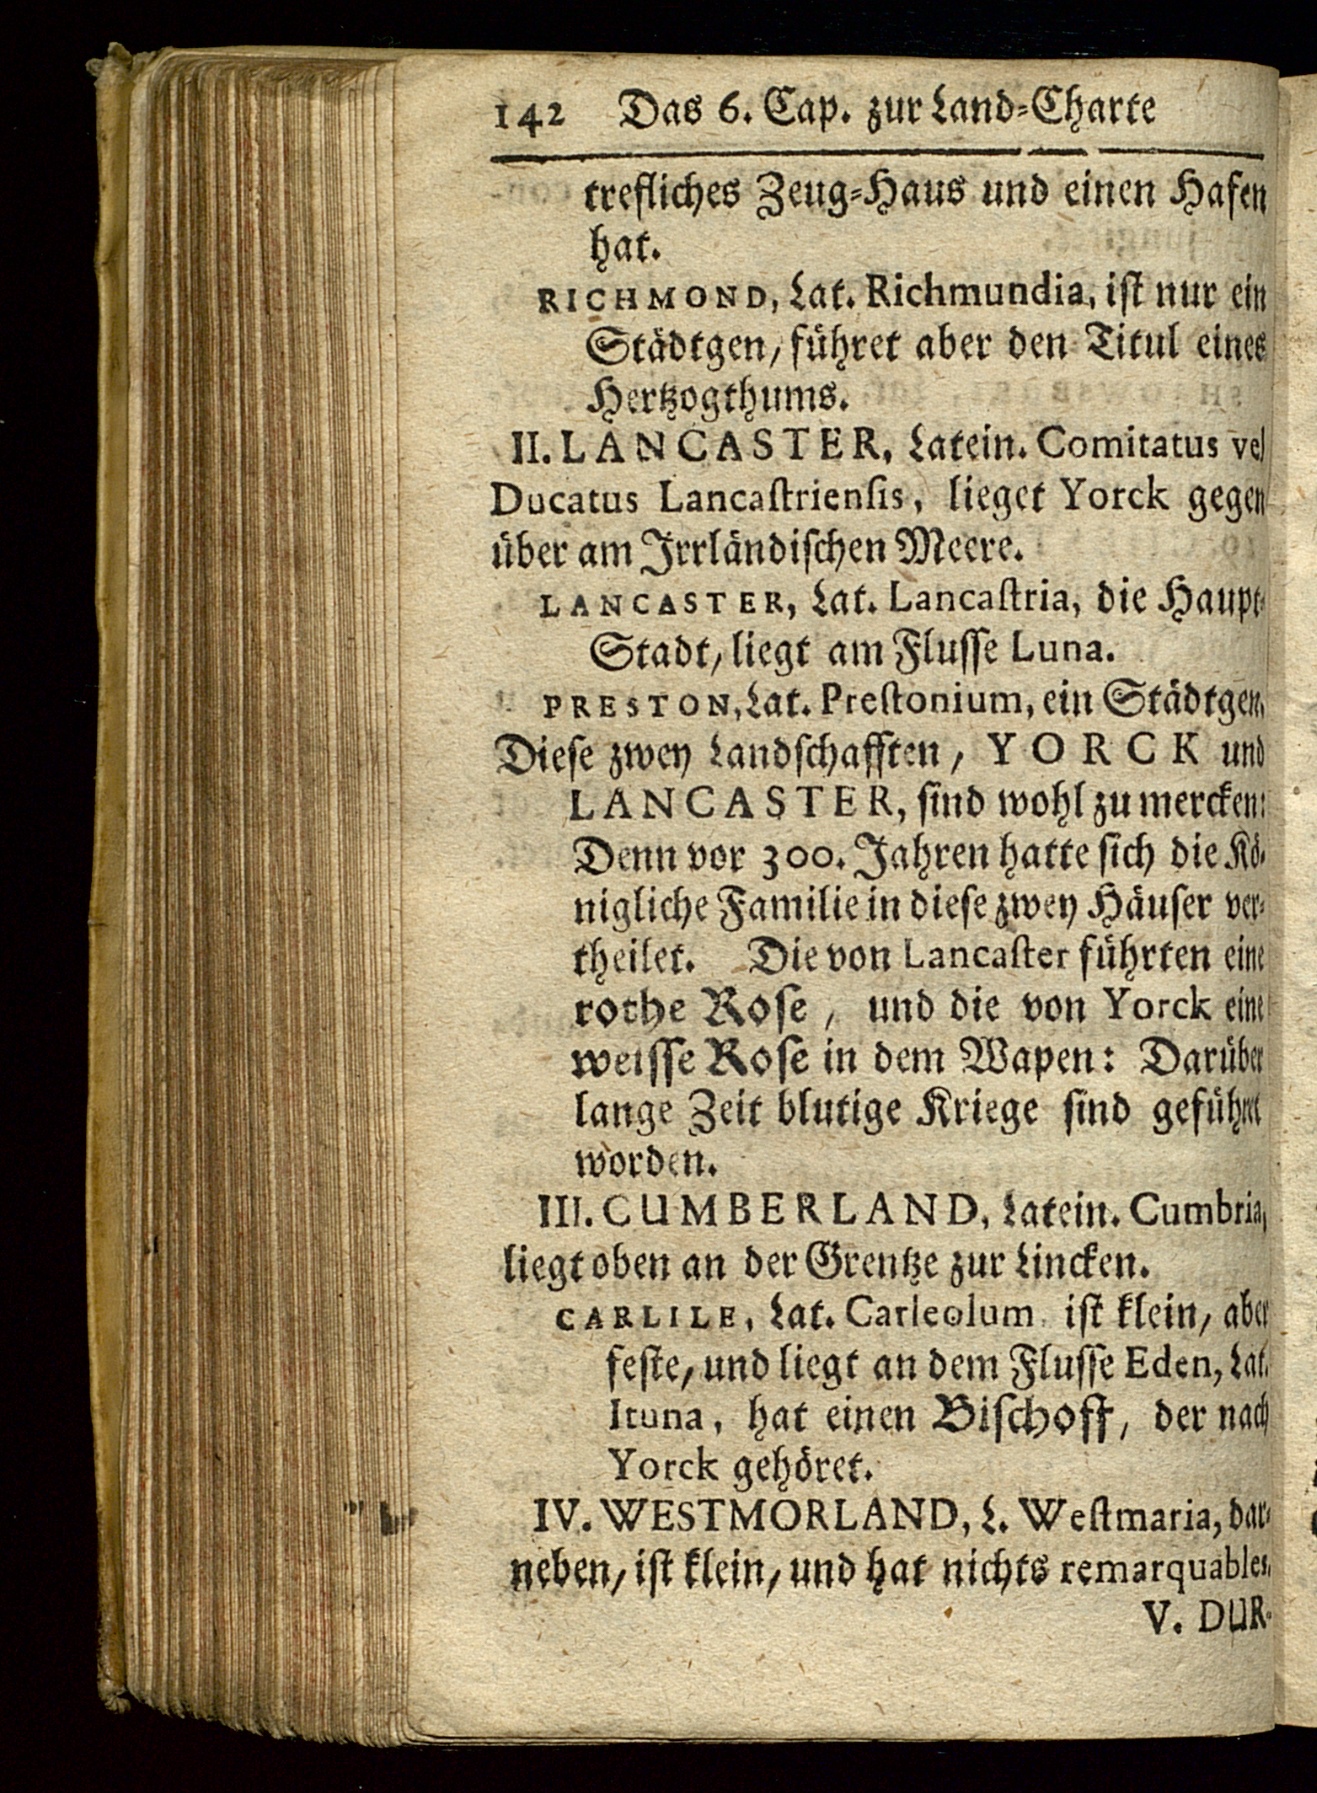 142 Das 6. Cap. zur Land-Charte
trefliches Zeug-Haus und einen Hafen
hat.
RICHMOND, Lat. Richmundia, ist nur ein
Städtgen, führet aber den Titul eines
Hertzogthums.
II. LANCASTER, Latein. Comitatus vel
Ducatus Lancastriensis, lieget Yorck gegen
über am Irrländischen Meere.
LANCASTER, Lat. Lancastria, die Haupt-
Stadt, liegt am Flusse Luna.
PRESTON, Lat. Prestonium, ein Städtgen.
Diese zwey Landschafften, YORCK und
LANCASTER, sind wohl zu mercken:
Denn vor 300. Jahren hatte sich die Kö-
nigliche Familie in diese zwey Häuser ver-
theilet. Die von Lancaster führten eine
rothe Rose, und die von Yorck eine
weisse Rose in dem Wapen: Darüber
lange Zeit blutige Kriege sind geführet
worden.
III. CUMBERLAND, Latein. Cumbria,
liegt oben an der Grentze zur Lincken.
CARLILE, Lat. Carleolum, ist klein, aber
feste, und liegt an dem Flusse Eden, Lat.
Ituna, hat einen Bischoff, der nach
Yorck gehöret.
IV. WESTMORLAND, L. Westmaria, dar-
neben, ist klein, und hat nichts remarquables.
V. DUR-